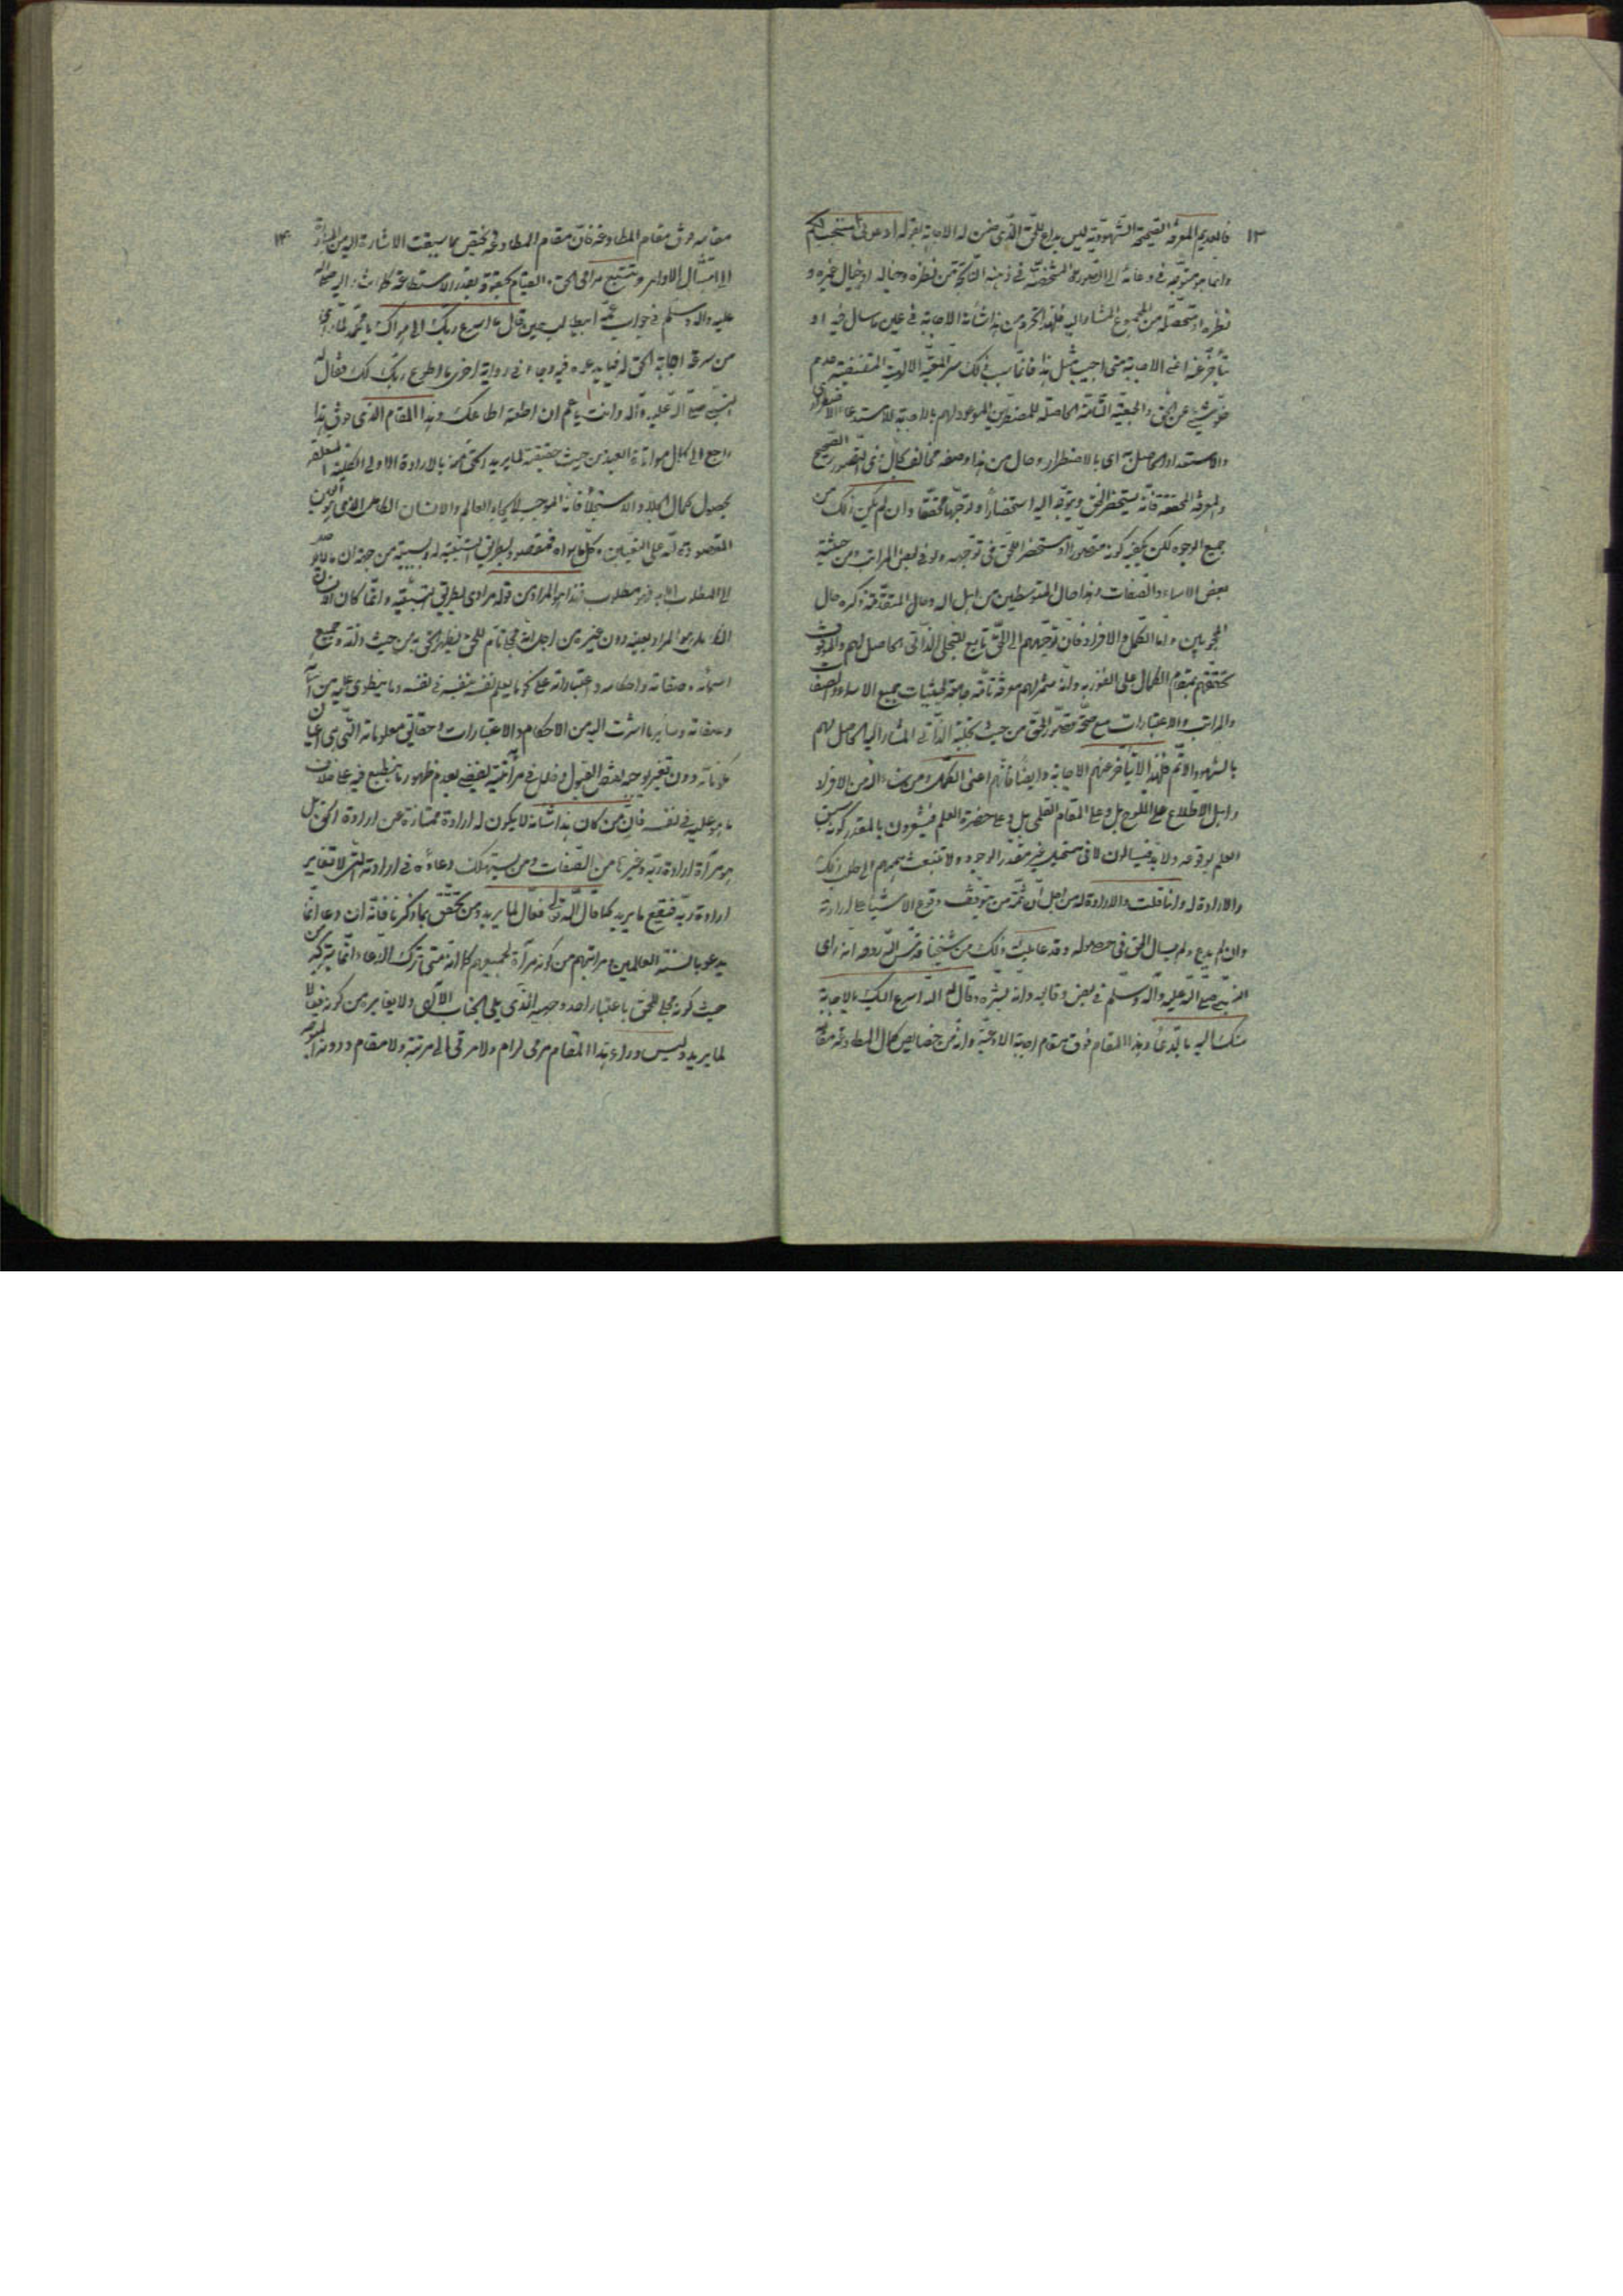 ١٣
فالعديم المعرفة الصحيحة الشهودية ليس بداع للحق الذي ضمن له الاجابة بقوله ادعوني استجب لكم
وانما هو متوجه في دعائه الى الصورة المشخصة في ذهنه الناتجة من نظره وخياله او خيال غيره و
نظره او متحصلة من المجموع المشار اليه فلهذا يحرم من هذا شأنه الاجابة في عين ما سأل فيه او
يتأخر عنه اعني الاجابة متى اجيب مثل هذا فانما سبب ذلك سر المعية الالهية المقتضية عدم
خلو شيء عن الحق والجمعية التامة الحاصلة للمضطرين الموعود لهم بالاجابة للاستدعاء الاضطراري
والاستعداد الحاصل به اي بالاضطرار وحال من هذا وصفه مخالف لحال ذي التصور الصحيح
والمعرفة المحققة فانه يستحضر الحق ويتوجه اليه استحضارا وتوجها محققا وان لم يكن ذلك من
جميع الوجوه لكن يكفيه كونه متصورا ومستحضرا للحق في توجهه ولو في بعض المراتب ومن حيثية
بعض الاسماء والصفات وهذا حال المتوسطين من اهل الله وحال المتقدمة ذكره حال
المحجوبين واما الكمل والافراد فان توجههم الى الحق تابع للتجلي الذاتي الحاصل لهم والموقوف
تحققهم بمقام الكمال على الفوز به وانه مثمر لهم معرفة تامة جامعة لحيثيات جميع الاسماء والصفات
والمراتب والاعتبارات مع صحة تصور الحق من حيث تجليه الذاتي المشار اليه الحاصل لهم
بالشهود الاتم فلهذا لا يتأخر عنهم الاجابة وايضا فانهم اعني الكمل ومن شاء الله من الافراد
واهل الاطلاع على اللوح بل وعلى المقام القلمي بل وعلى حضرة العلم فيشعرون بالمقدر كونه لسبق
العلم بوقوعه ولا بد فيسألون لا في مستحيل غير مقدر الوجود ولا تنبعث هممهم الى طلب ذلك
والارادة له وانما قلت والارادة له من اجل ان ثمة من يتوقف وقوع الاشياء على ارادته
وان لم يدع ولم يسأل الحق في حصوله وقد عاينت ذلك من شيخنا قدس الله روحه انه رأى
النبي صلى الله عليه وآله وسلم في بعض وقائعه وانه بشره وقال له الله اسرع اليك بالاجابة
منك اليه بالدعاء وهذا المقام فوق مقام اجابة الادعية وانه من خصايص كمال المطاوعة ومقام
١٤
مقامه فوق مقام المطاوعة فان مقام المطاوعة يختص بما سبقت الاشارة اليه من المبادرة
الى امتثال الاوامر وتتبع مراضي الحق والقيام بحقوقه بقدر الاستطاعة كما اشار اليه صلى الله
عليه وآله وسلم في جواب عمه ابيطالب حين قال ما اسرع ربك الى هواك يا محمد لما رأى
من سرعة اجابة الحق له فيما يدعوه فيه وجاء في رواية اخرى ما اطوع ربك لك فقال له
النبي صلى الله عليه وآله وانت يا عم ان اطعته اطاعك وهذا المقام الذي فوق هذا
راجع الى كمال مواتاة العبد من حيث حقيقته لما يريد الحق منه بالارادة الاولى الكلية المتعلقة
بحصول كمال الجلاء والاستجلاء فانه الموجب لايجاد العالم والانسان الكامل الذي هو العين
المقصودة لله على التعيين وكل ما سواه فمقصود بطريق التبعية له وبسببه من جهة ان ما لا يوصل
الى المطلوب الا به فهو مطلوب فهذا هو المراد من قوله مرادي بطريق التبعية وانما كان الانسان
الكامل هو المراد بعينه دون غيره من اجل انه مجلى تام للحق يظهر الحق به من حيث ذاته وجميع
اسمائه وصفاته واحكامه واعتباراته على نحو ما يعلم نفسه بنفسه في نفسه وما ينطوي عليه من اسمائه
وصفاته وسائر ما اشرت اليه من الاحكام والاعتبارات وحقائق معلوماته التي هي اعيان
مكوناته دون تغيير يوجبه نقص القبول وخلل في مرآتيته يقضي بعدم ظهور ما ينطبع فيه على خلاف
ما هو عليه في نفسه فان من كان هذا شأنه لا يكون له ارادة ممتازة عن ارادة الحق بل
هو مرآة ارادة ربه وغيرها من الصفات ومن يستهلك دعاؤه في ارادته التي لا تغاير
ارادة ربه فيقع ما يريد كما قال الله تعالى فعال لما يريد ومن تحقق بما ذكرنا فانه ان دعا انما
يدعو بالسنة العالمين ومراتبهم من كونه مرآة لجميعهم كما انه متى ترك الدعاء انما يتركه من
حيث كونه مجلى للحق باعتبار احد وجهيه الذي يلي الجناب الالهي ولا يغايره من كونه فعالا
لما يريد وليس وراء هذا المقام مرمى لرام ولا مرقى الى مرتبة ولا مقام ودونه